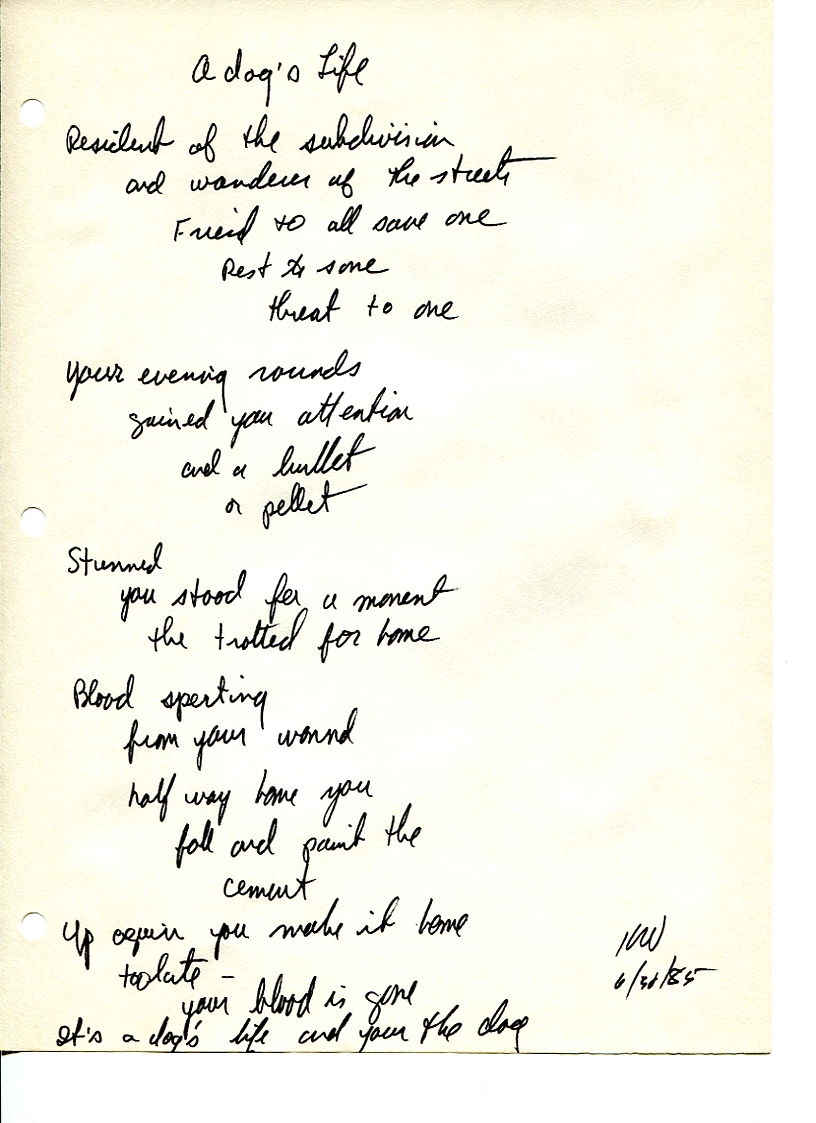 A dog's Life
Resident of the subdivision
and wanderer of the streets
Friend to all save one
Pest to some
threat to one
Your evening rounds
gained you attention
and a bullet
or pellet
Stunned
you stood for a moment
the trotted for home
Blood sperting
from your wound
half way home you
fall and paint the
cement
Up again you make it home
too late -
your blood is gone
It's a dog's life and your the dog
KW
6/30/85